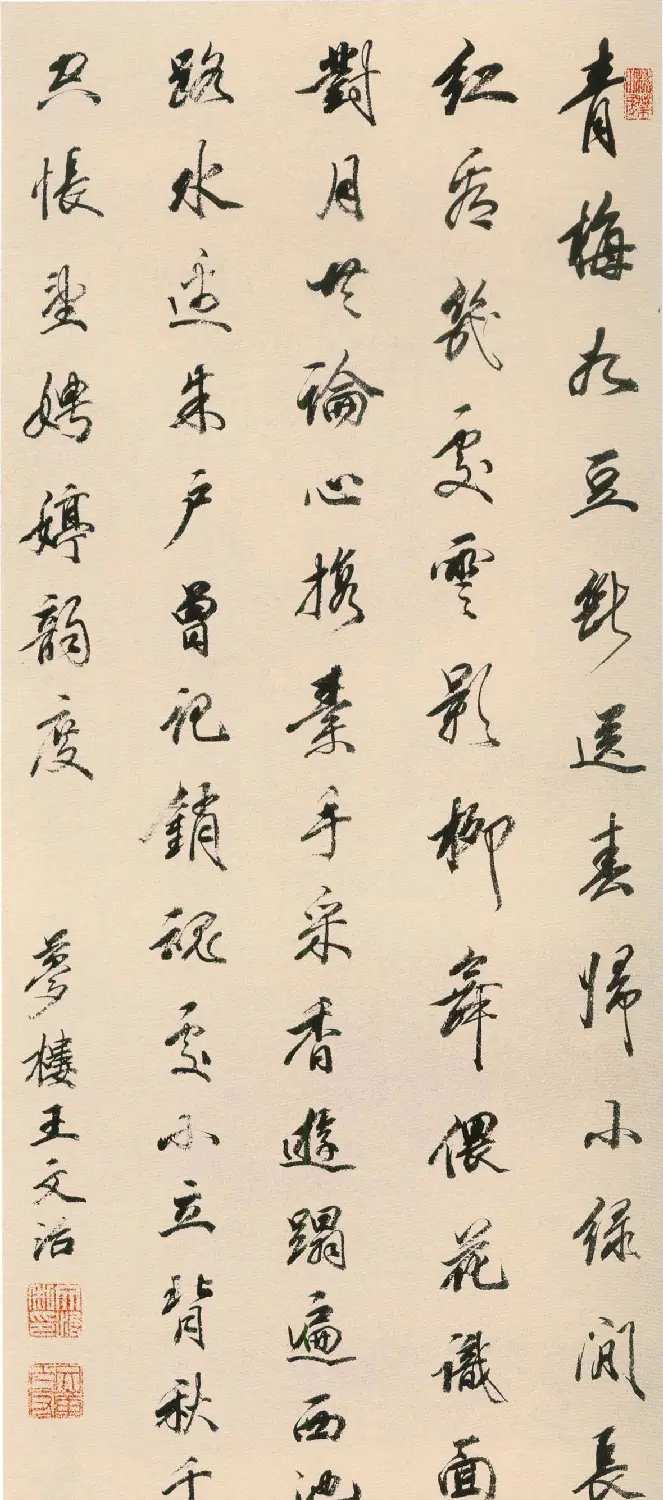 青梅如豆斷送春歸小綠間長
紅看幾處雲影柳舞偎花識面
對月共論心携素手采香遊蹋遍西池
路水邊朱户曾記銷魂處小立背秋千
空悵望娉婷韵度
夢樓王文治